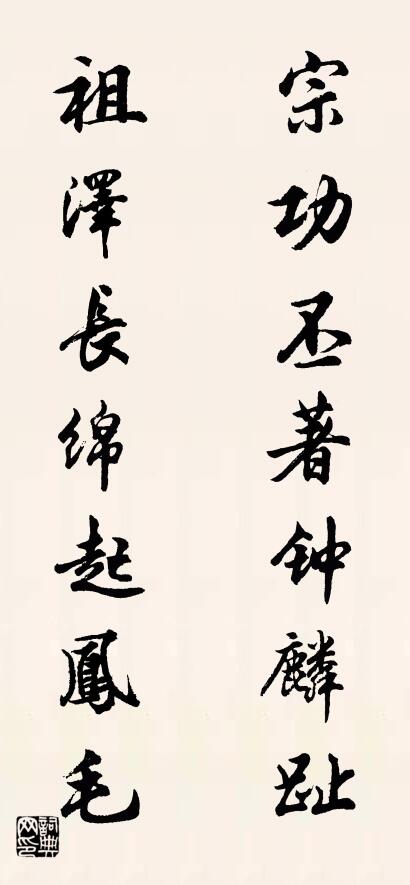 宗功丕著钟麟趾
祖澤長绵起鳳毛
詞典网印